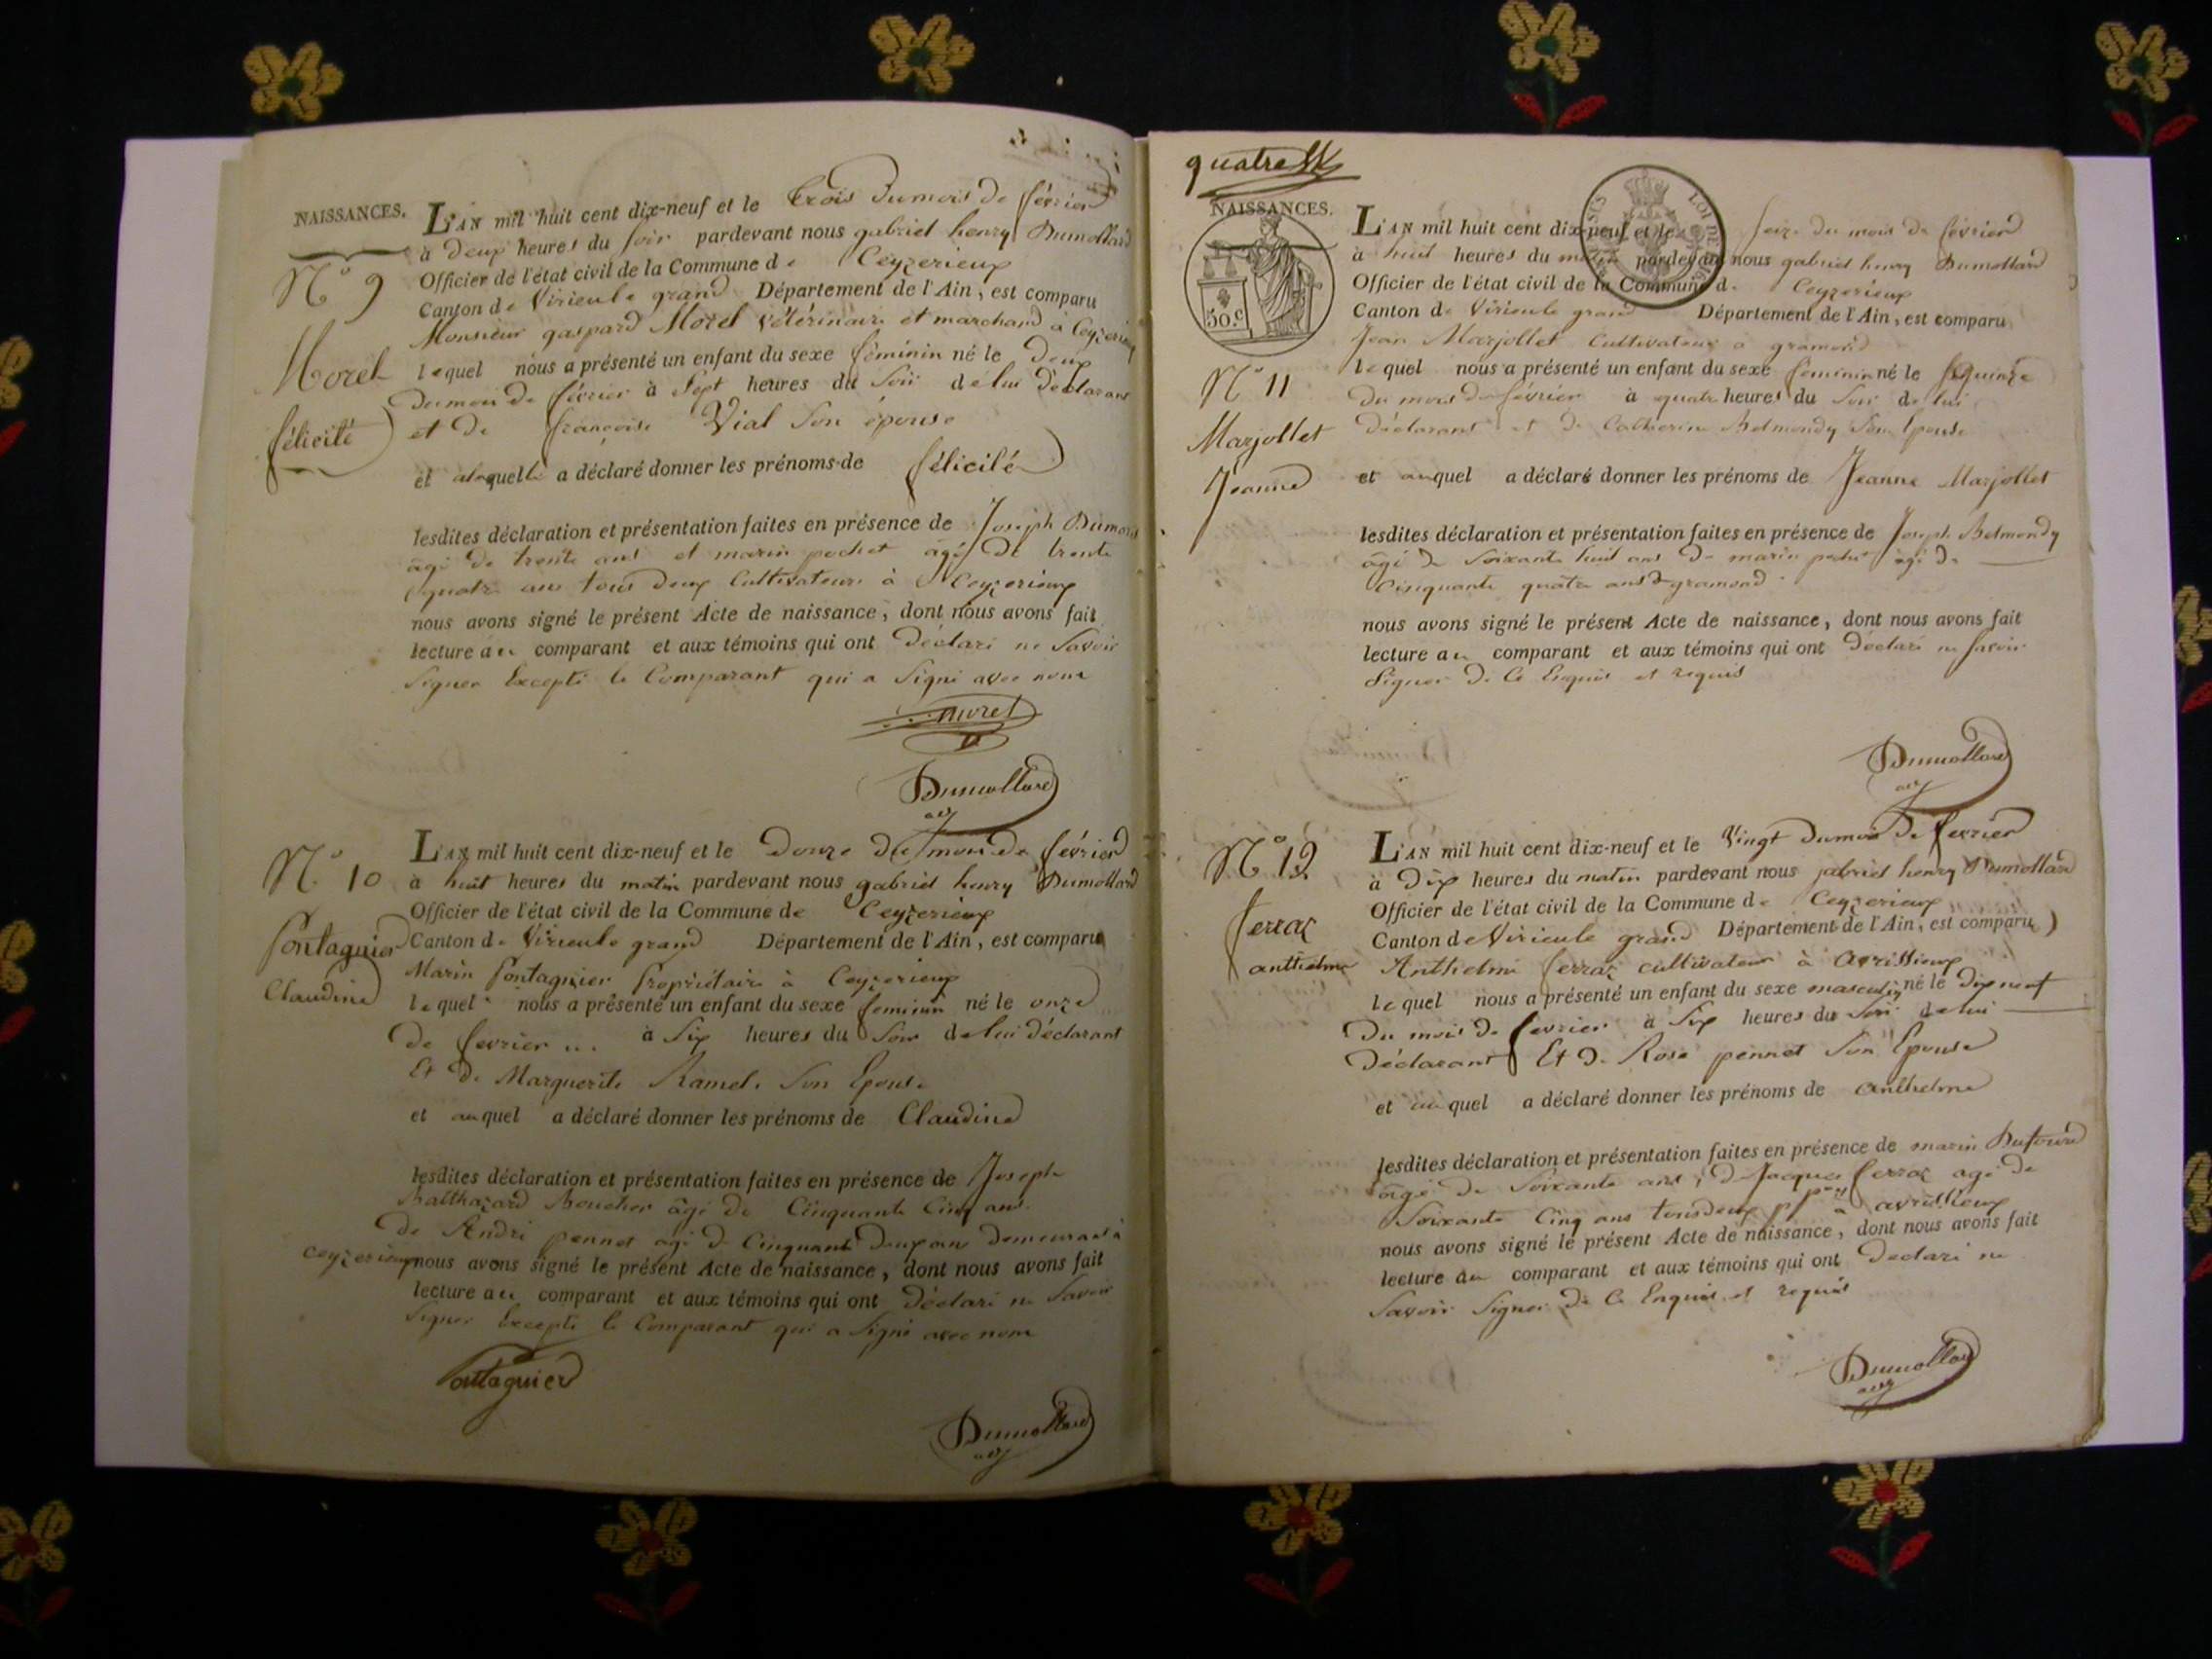 NAISSANCES.
N.o 9
Morel
félicité
L'AN mil huit cent dix-neuf et le trois du mois de février
à deux heures du soir pardevant nous gabriel henry Dumollard
Officier de l'état civil de la Commune de Ceyzerieux
Canton de Virieu le grand Département de l'Ain, est comparu
Monsieur gaspard Morel vétérinaire et marchand à Ceyzerieux
lequel nous a présenté un enfant du sexe féminin né le deux
du mois de février à sept heures du soir de lui déclarant
et de françoise Vial son épouse
et a déclaré donner les prénoms de félicité
lesdites déclaration et présentation faites en présence de Joseph
âgé de trente ans et marin pochet âgé de trente
quatre ans tous deux cultivateurs à Ceyzerieux
nous avons signé le présent Acte de naissance, dont nous avons fait
lecture au comparant et aux témoins qui ont déclaré ne savoir
signer Excepté le Comparant qui a signé avec nous
morel
Dumollard
N.o 10
fontagnier
Claudine
L'AN mil huit cent dix-neuf et le douze du mois de février
à huit heures du matin pardevant nous gabriel henry Dumollard
Officier de l'état civil de la Commune de Ceyzerieux
Canton de Virieu le grand Département de l'Ain, est comparu
Marin fontagnier propriétaire à Ceyzerieux
lequel nous a présenté un enfant du sexe feminin né le onze
de fevrier ... à six heures du soir de lui déclarant
Et de Marguerite Ramel son Epouse
et auquel a déclaré donner les prénoms de Claudine
lesdites déclaration et présentation faites en présence de Joseph
Balthazard Boucher âgé de Cinquante Cinq ans.
de André pennet agé de Cinquante deux ans demeurant à
ceyzerieux nous avons signé le présent Acte de naissance, dont nous avons fait
lecture au comparant et aux témoins qui ont déclaré ne savoir
signer Excepté le Comparant qui a signé avec nous
fontagnier
Dumollard
quatre
NAISSANCES.
50.c
LOI DE 1816
N.o 11
Marjollet
Jeanne
L'AN mil huit cent dix-neuf et le seize du mois de février
à huit heures du matin pardevant nous gabriel henry Dumollard
Officier de l'état civil de la Commune de Ceyzerieux
Canton de Virieu le grand Département de l'Ain, est comparu
Jean Marjollet Cultivateur à gramond
lequel nous a présenté un enfant du sexe féminin né le quinze
du mois de février à quatre heures du soir de lui
déclarant et de Catherine Belmondy son Epouse
et auquel a déclaré donner les prénoms de Jeanne Marjollet
lesdites déclaration et présentation faites en présence de Joseph Belmondy
âgé de soixante huit ans de marin âgé de
cinquante quatre ans gramond
nous avons signé le présent Acte de naissance, dont nous avons fait
lecture au comparant et aux témoins qui ont déclaré ne savoir
signer de ce Enquis et requis
Dumollard
N.o 12
ferraz
anthelme
L'AN mil huit cent dix-neuf et le Vingt du mois de fevrier
à Dix heures du matin pardevant nous gabriel henry Dumollard
Officier de l'état civil de la Commune de Ceyzerieux
Canton de Virieu le grand Département de l'Ain, est comparu
Anthelme ferraz cultivateur à avrissieux
lequel nous a présenté un enfant du sexe masculin né le dix neuf
du mois de fevrier à six heures du soir de lui
déclarant Et de Rose pennet son Epouse
et auquel a déclaré donner les prénoms de anthelme
lesdites déclaration et présentation faites en présence de marin Dufour
âgé de soixante ans, de Jacques ferraz agé de
soixante Cinq ans tous deux à avrissieux
nous avons signé le présent Acte de naissance, dont nous avons fait
lecture au comparant et aux témoins qui ont declaré ne
savoir signer de ce Enquis et requis
Dumollard